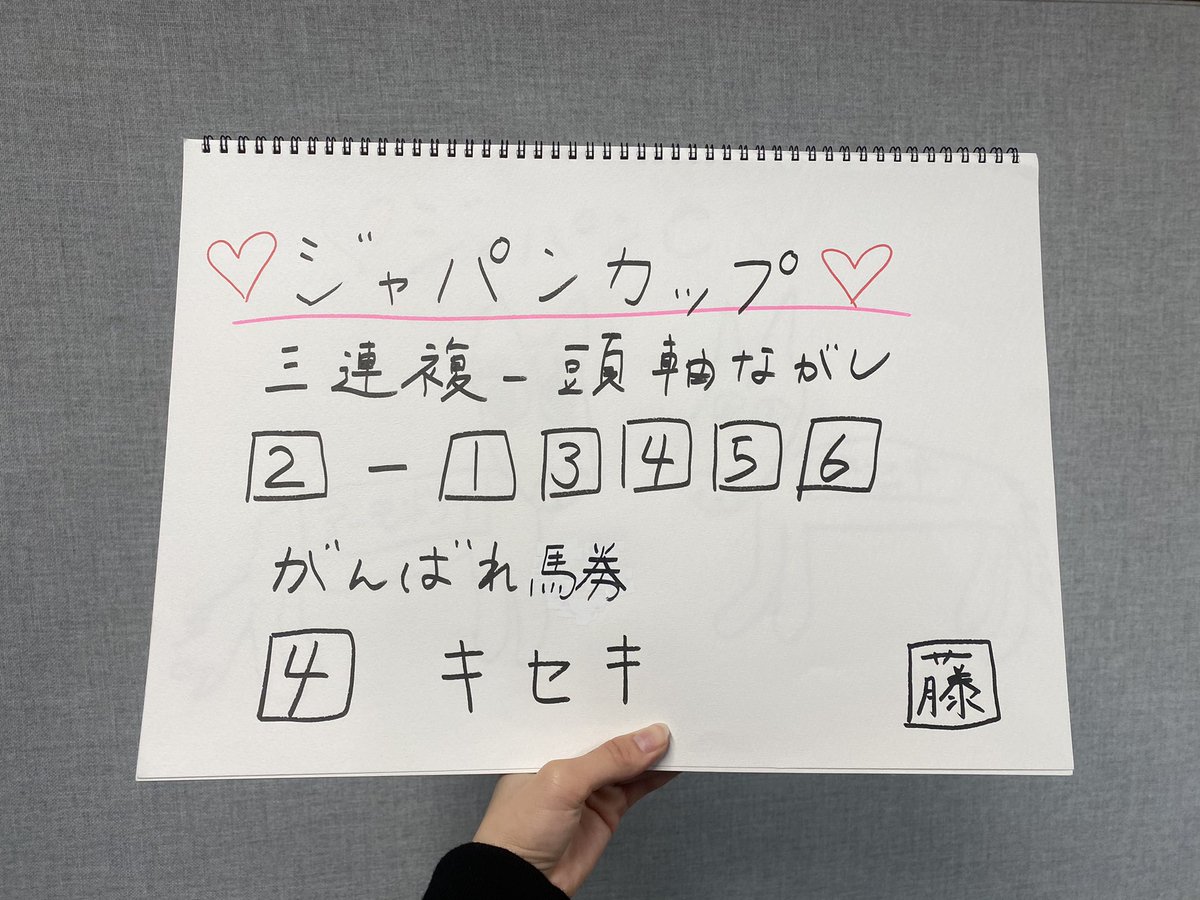 ♡ジャパンカップ♡
三連複一頭軸ながし
2 - 1 3 4 5 6
がんばれ馬券
4 キセキ
藤